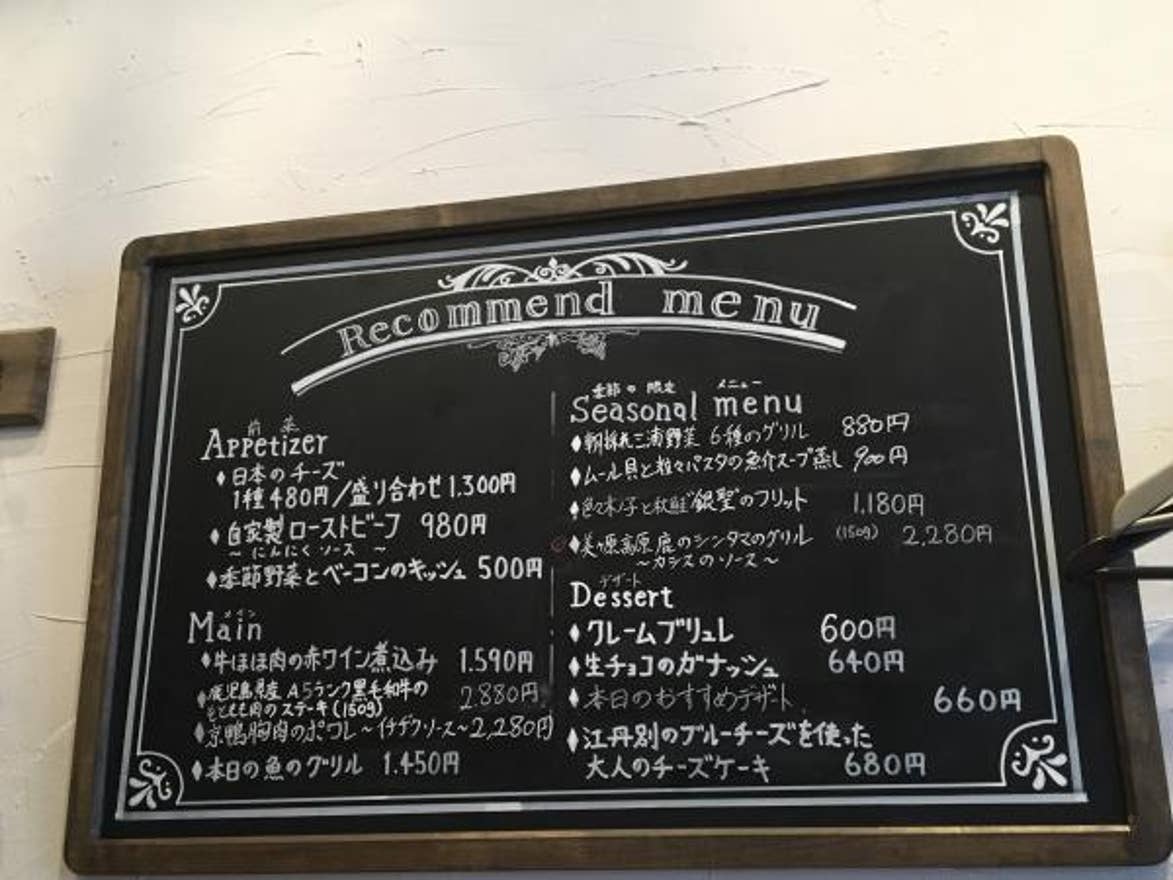 Recommend menu
前菜
Appetizer
♦日本のチーズ
1種480円/盛り合わせ1.300円
♦自家製ローストビーフ 980円
〜にんにくソース〜
♦季節野菜とベーコンのキッシュ 500円
メイン
Main
♦牛ほほ肉の赤ワイン煮込み 1.590円
♦鹿児島県産 A5ランク黒毛和牛の 2.880円
もも肉のステーキ(150g)
♦京鴨胸肉のポワレ〜イチヂクソース〜2,280円
♦本日の魚のグリル 1.450円
季節の限定メニュー
Seasonal menu
♦朝採れ三浦野菜 6種のグリル 880円
♦ムール貝と粒々パスタの魚介スープ蒸し 900円
♦色々木ノ子と秋鮭"銀聖"のフリット 1.180円
♦美ヶ原高原鹿のシンタマのグリル (150g) 2,280円
〜カシスのソース〜
デザート
Dessert
♦クレームブリュレ 600円
♦生チョコのガナッシュ 640円
♦本日のおすすめデザート 660円
♦江丹別のブルーチーズを使った
大人のチーズケーキ 680円